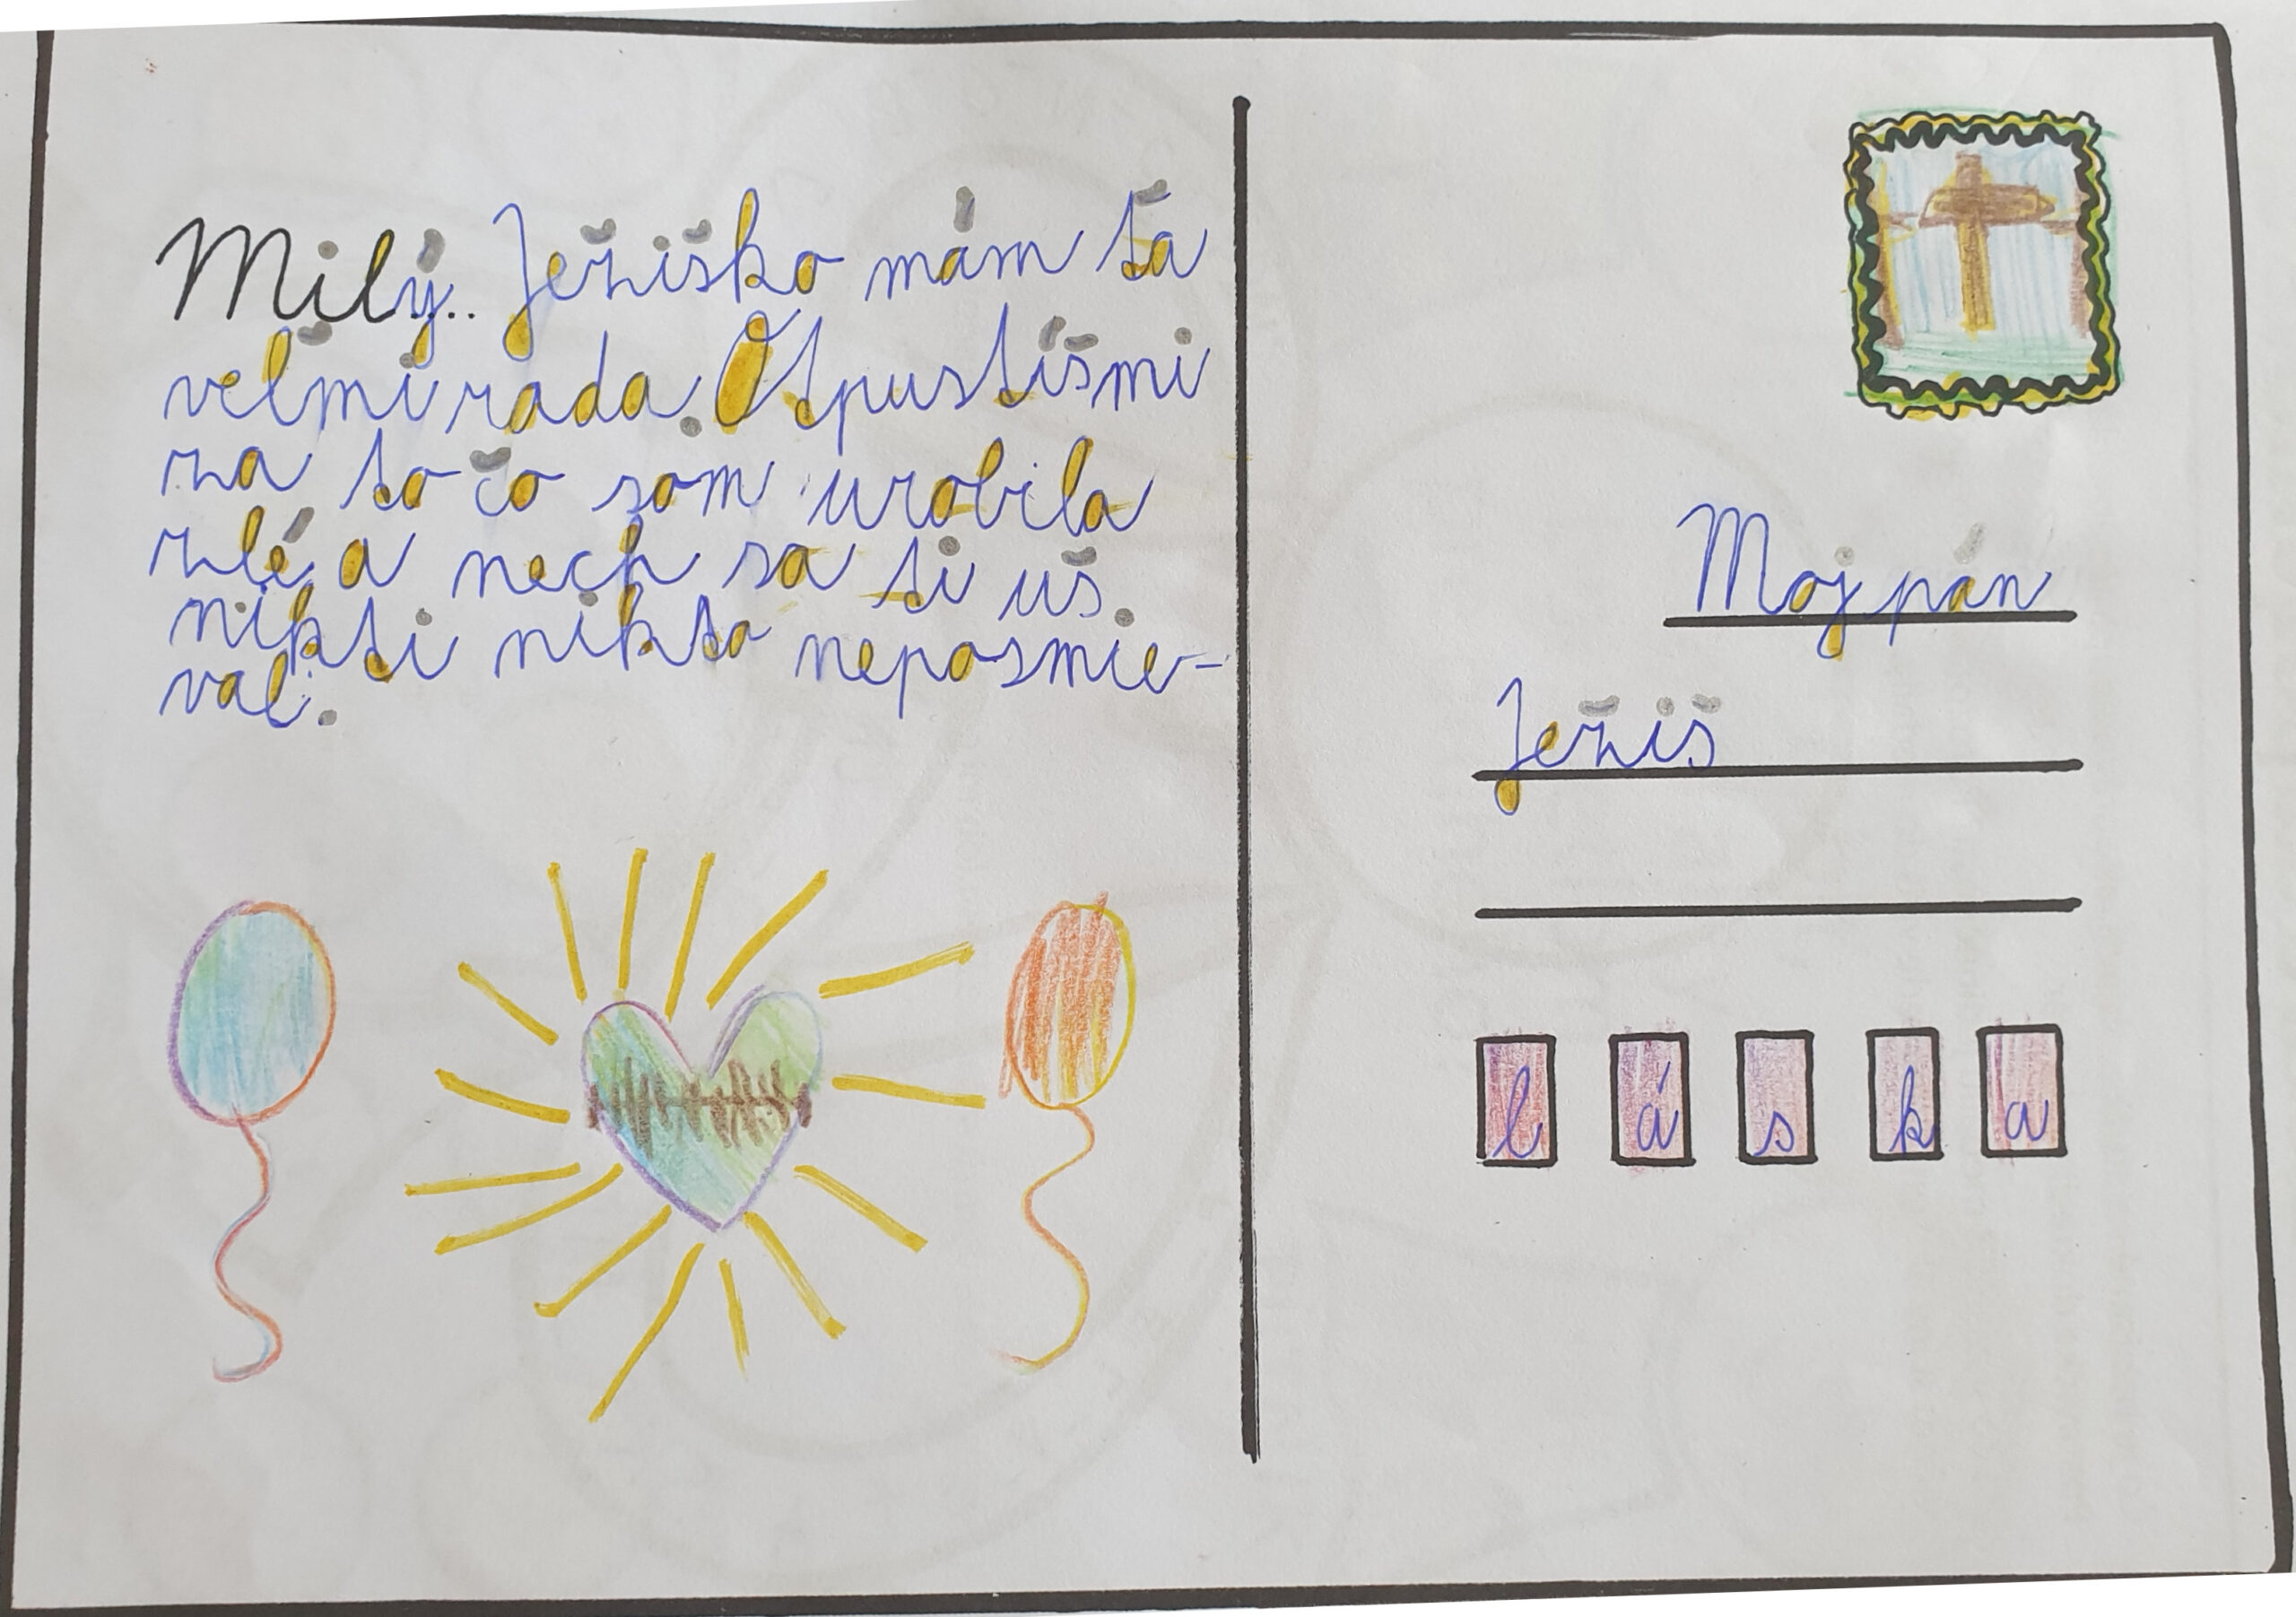 Milý... Ježiško mám ťa
veľmi rada. Otpustíšmi
za to čo som urobila
zlé a nech sa ti uš
nikti nikto neposmie-
val.
Moj pán
Ježiš
l á s k a